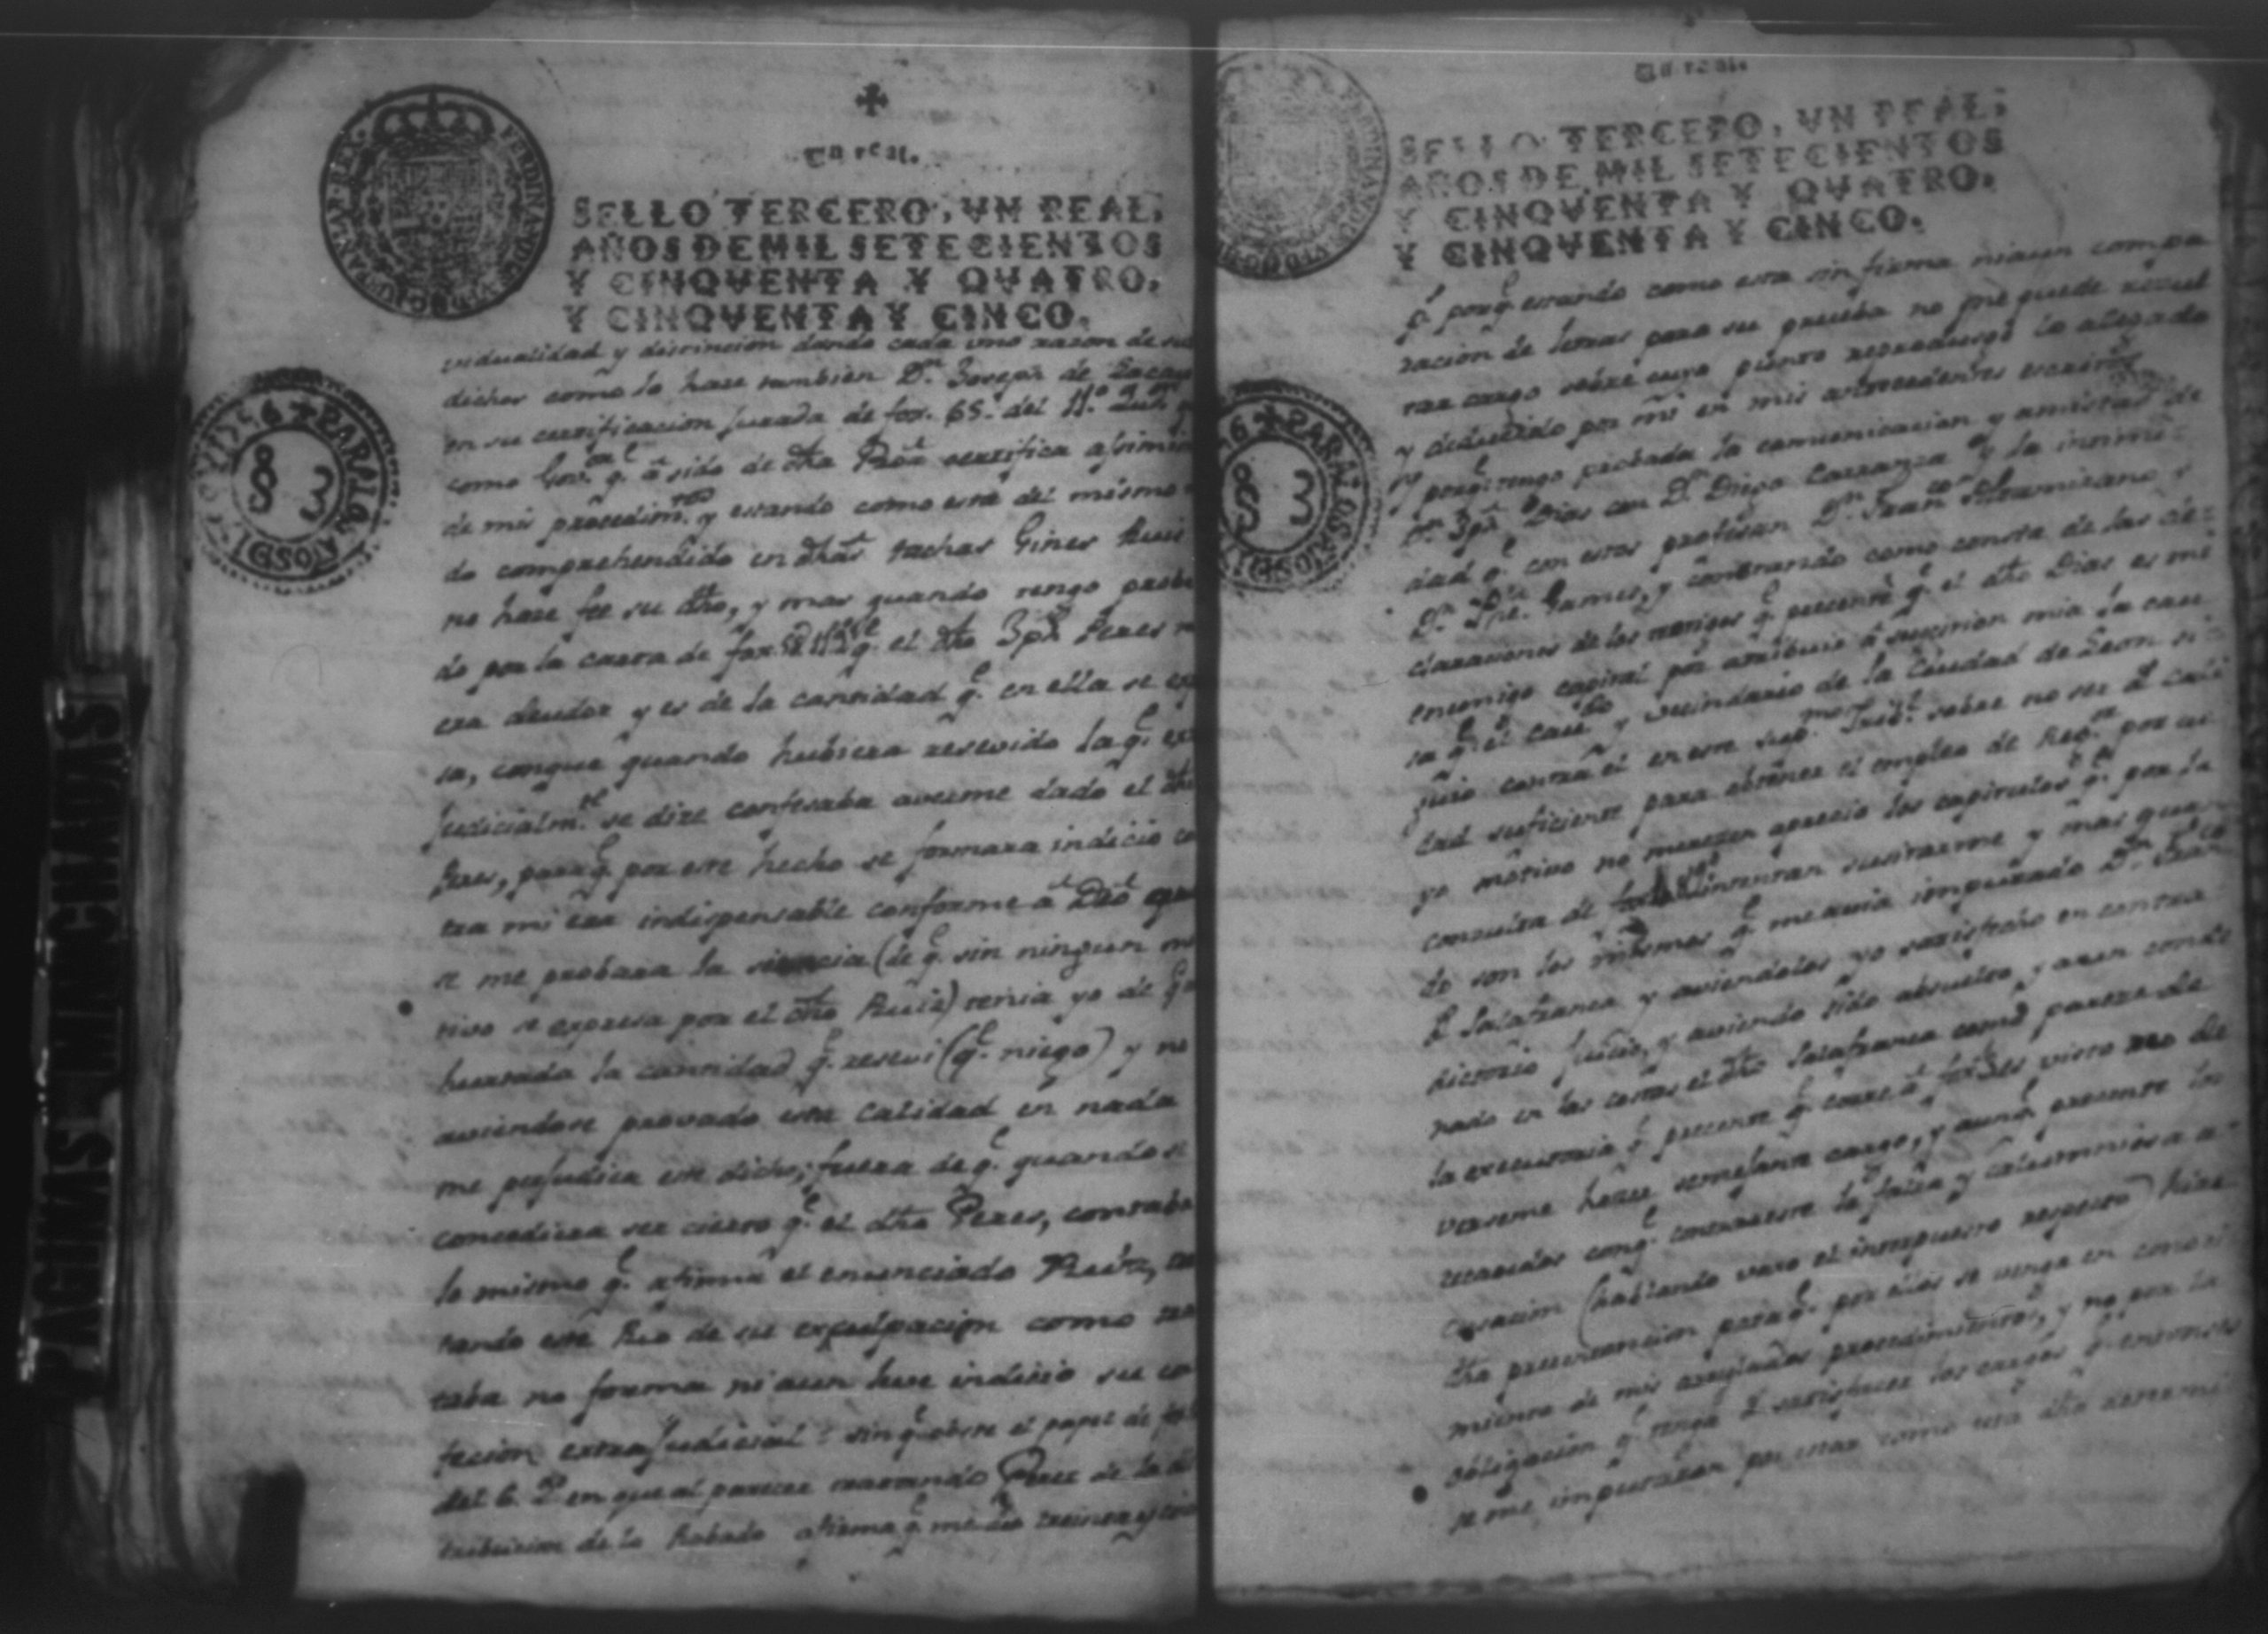 Un real.
SELLO TERCERO, VN REAL,
AÑOS DE MIL SETECIENTOS
Y CINQVENTA Y QVATRO,
Y CINQVENTA Y CINCO.
vidualidad y distincion dando cada uno razon de su
dichos como lo hase tambien Dn. Joseph de
en su certificacion jurada de fox. 65. del 11.º
como Gov.or q.e á sido de dha certifica
de mis procedim.tos y estando como esta del mismo
do comprehendido en dhas tachas Gines Ruis
no hase fee su dho, y mas quando tengo proba
do por la carta de fox. q.e el dho Jph Peres
era deudor y es de la cantidad q.e en ella se
sa, conque quando hubiera resevido la q.e
judicialm.te se dize confesaba averme dado el dho
Peres, para q.e por este hecho se formara indicio co
tra mi era indispensable conforme á Dro
se me probara la siencia (de q.e sin ningun mo
tivo se expresa por el dho Ruis) tenia yo de
hurtado la cantidad q.e resevi (q.e niego) y no
aviendose provado esta calidad en nada
me perjudica este dicho; fuera de q.e quando se
concediera ser cierto q.e el dho Peres, contaba
lo mismo q.e afirma el enunciado Ruiz,
tando este Reo de su exculpacion como
taba no forma ni aun leve indicio su
fecion extrajudicial: sin q.e obste el papel de
del 6. en que al parecer tratando Perez de la
tribucion de lo Robado afirma q.e me dio treinta y
PARA LOS AÑOS DE 1756
83
Un real.
SELLO TERCERO, VN REAL,
AÑOS DE MIL SETECIENTOS
Y CINQVENTA Y QVATRO,
Y CINQVENTA Y CINCO.
porq.e estando como esta sin firma ni aun compa
racion de letras para su prueba no me puede resul
tar cargo sobre cuyo punto reproduzgo lo alegado
y deducido por mi en mis antecedentes escritos
Y porq.e tengo probada la comunicacion y amistad de
Dn. Jph Dias con Dn. Diego Carranza y la intimi
dad q.e con estos profesan Dn. Juan Altamirano y
Dn. Phe. Games, y constando como consta de las de
claraciones de los testigos q.e presenté q.e el dho Dias es mi
enemigo capital por atribuir á sugestion mia la cau
sa q.e el Cav.do y vecindario de la Ciudad de Leon si
guio contra él en este sup.mo Trib.l sobre no ser de cali
dad suficiente para obtener el empleo de Reg.or por cu
yo motivo no merezen aprecio los capitulos q.e por la
consulta de intentan sucitarme y mas quan
do son los mismos q.e me avia imputado Dn.
P. Salafranca y aviendolos yo satisfecho en contra
dictorio juicio, y aviendo sido absuelto, y aun conde
nado en las costas el dho Salafranca como pareze de
la executoria q.e presenté q.e corre á fox. es visto no de
verseme hazer semejante cargo, y aunq.e presente los
recaudos conq.e contrareste la falsa y calumniosa a
cusacion (hablando vaxo el interpuesto respecto) hize
dha presentacion para q.e por ellos se venga en conosi
miento de mis arreglados procedimientos, y no por la
obligacion q.e tenga á satisfacer los cargos q.e entonses
se me imputaron por estar como esta dha determi
83
PAGINAS MANCHADAS